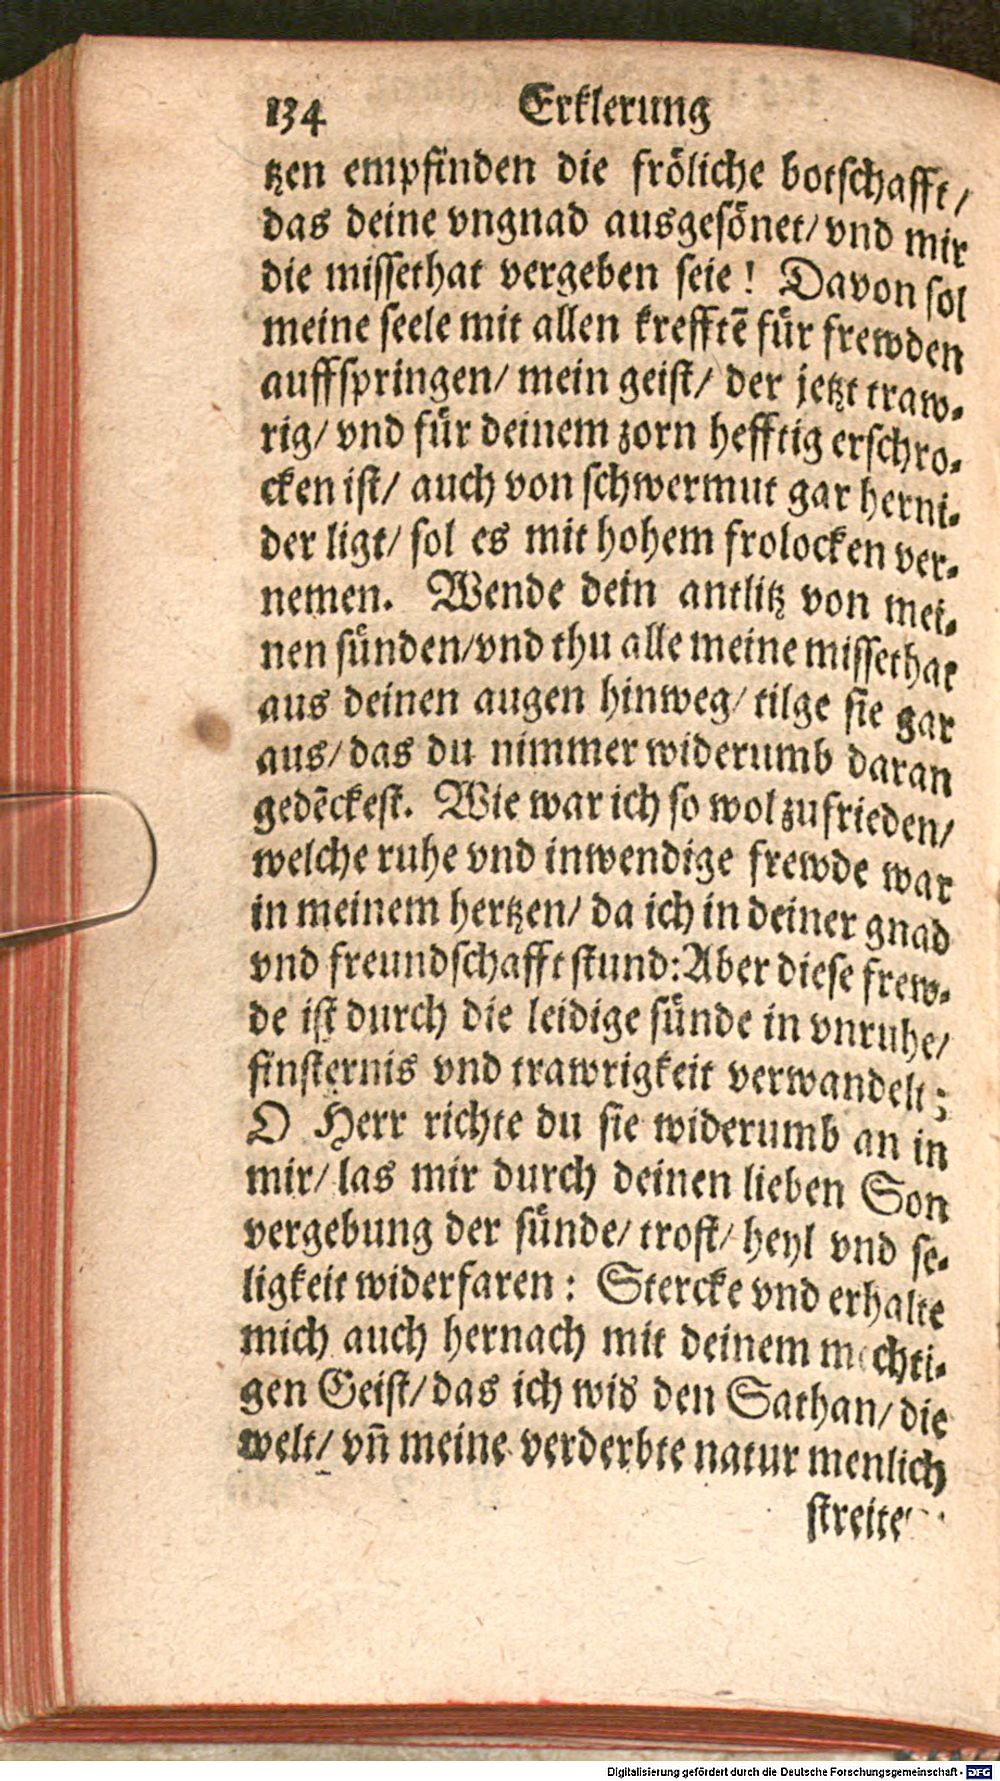 134 Erklerung
tzen empfinden die fröliche botschafft/
das deine vngnad ausgesönet/ vnd mir
die missethat vergeben seie! Davon sol
meine seele mit allen krefftē für frewden
auffspringen/ mein geist/ der jetzt traw-
rig/ vnd für deinem zorn hefftig erschro-
cken ist/ auch von schwermut gar herni-
der ligt/ sol es mit hohem frolocken ver-
nemen. Wende dein antlitz von mei-
nen sünden/vnd thu alle meine missethat
aus deinen augen hinweg/ tilge sie gar
aus/ das du nimmer widerumb daran
gedēckest. Wie war ich so wol zufrieden/
welche ruhe vnd inwendige frewde war
in meinem hertzen/ da ich in deiner gnad
vnd freundschafft stund: Aber diese frew-
de ist durch die leidige sünde in vnruhe/
finsternis vnd trawrigkeit verwandelt:
O Herr richte du sie widerumb an in
mir/ las mir durch deinen lieben Son
vergebung der sünde/ trost/ heyl vnd se-
ligkeit widerfaren: Stercke vnd erhalte
mich auch hernach mit deinem mechti-
gen Geist/ das ich wid den Sathan/ die
welt/ vñ meine verderbte natur menlich
streite
Digitalisierung gefördert durch die Deutsche Forschungsgemeinschaft - DFG